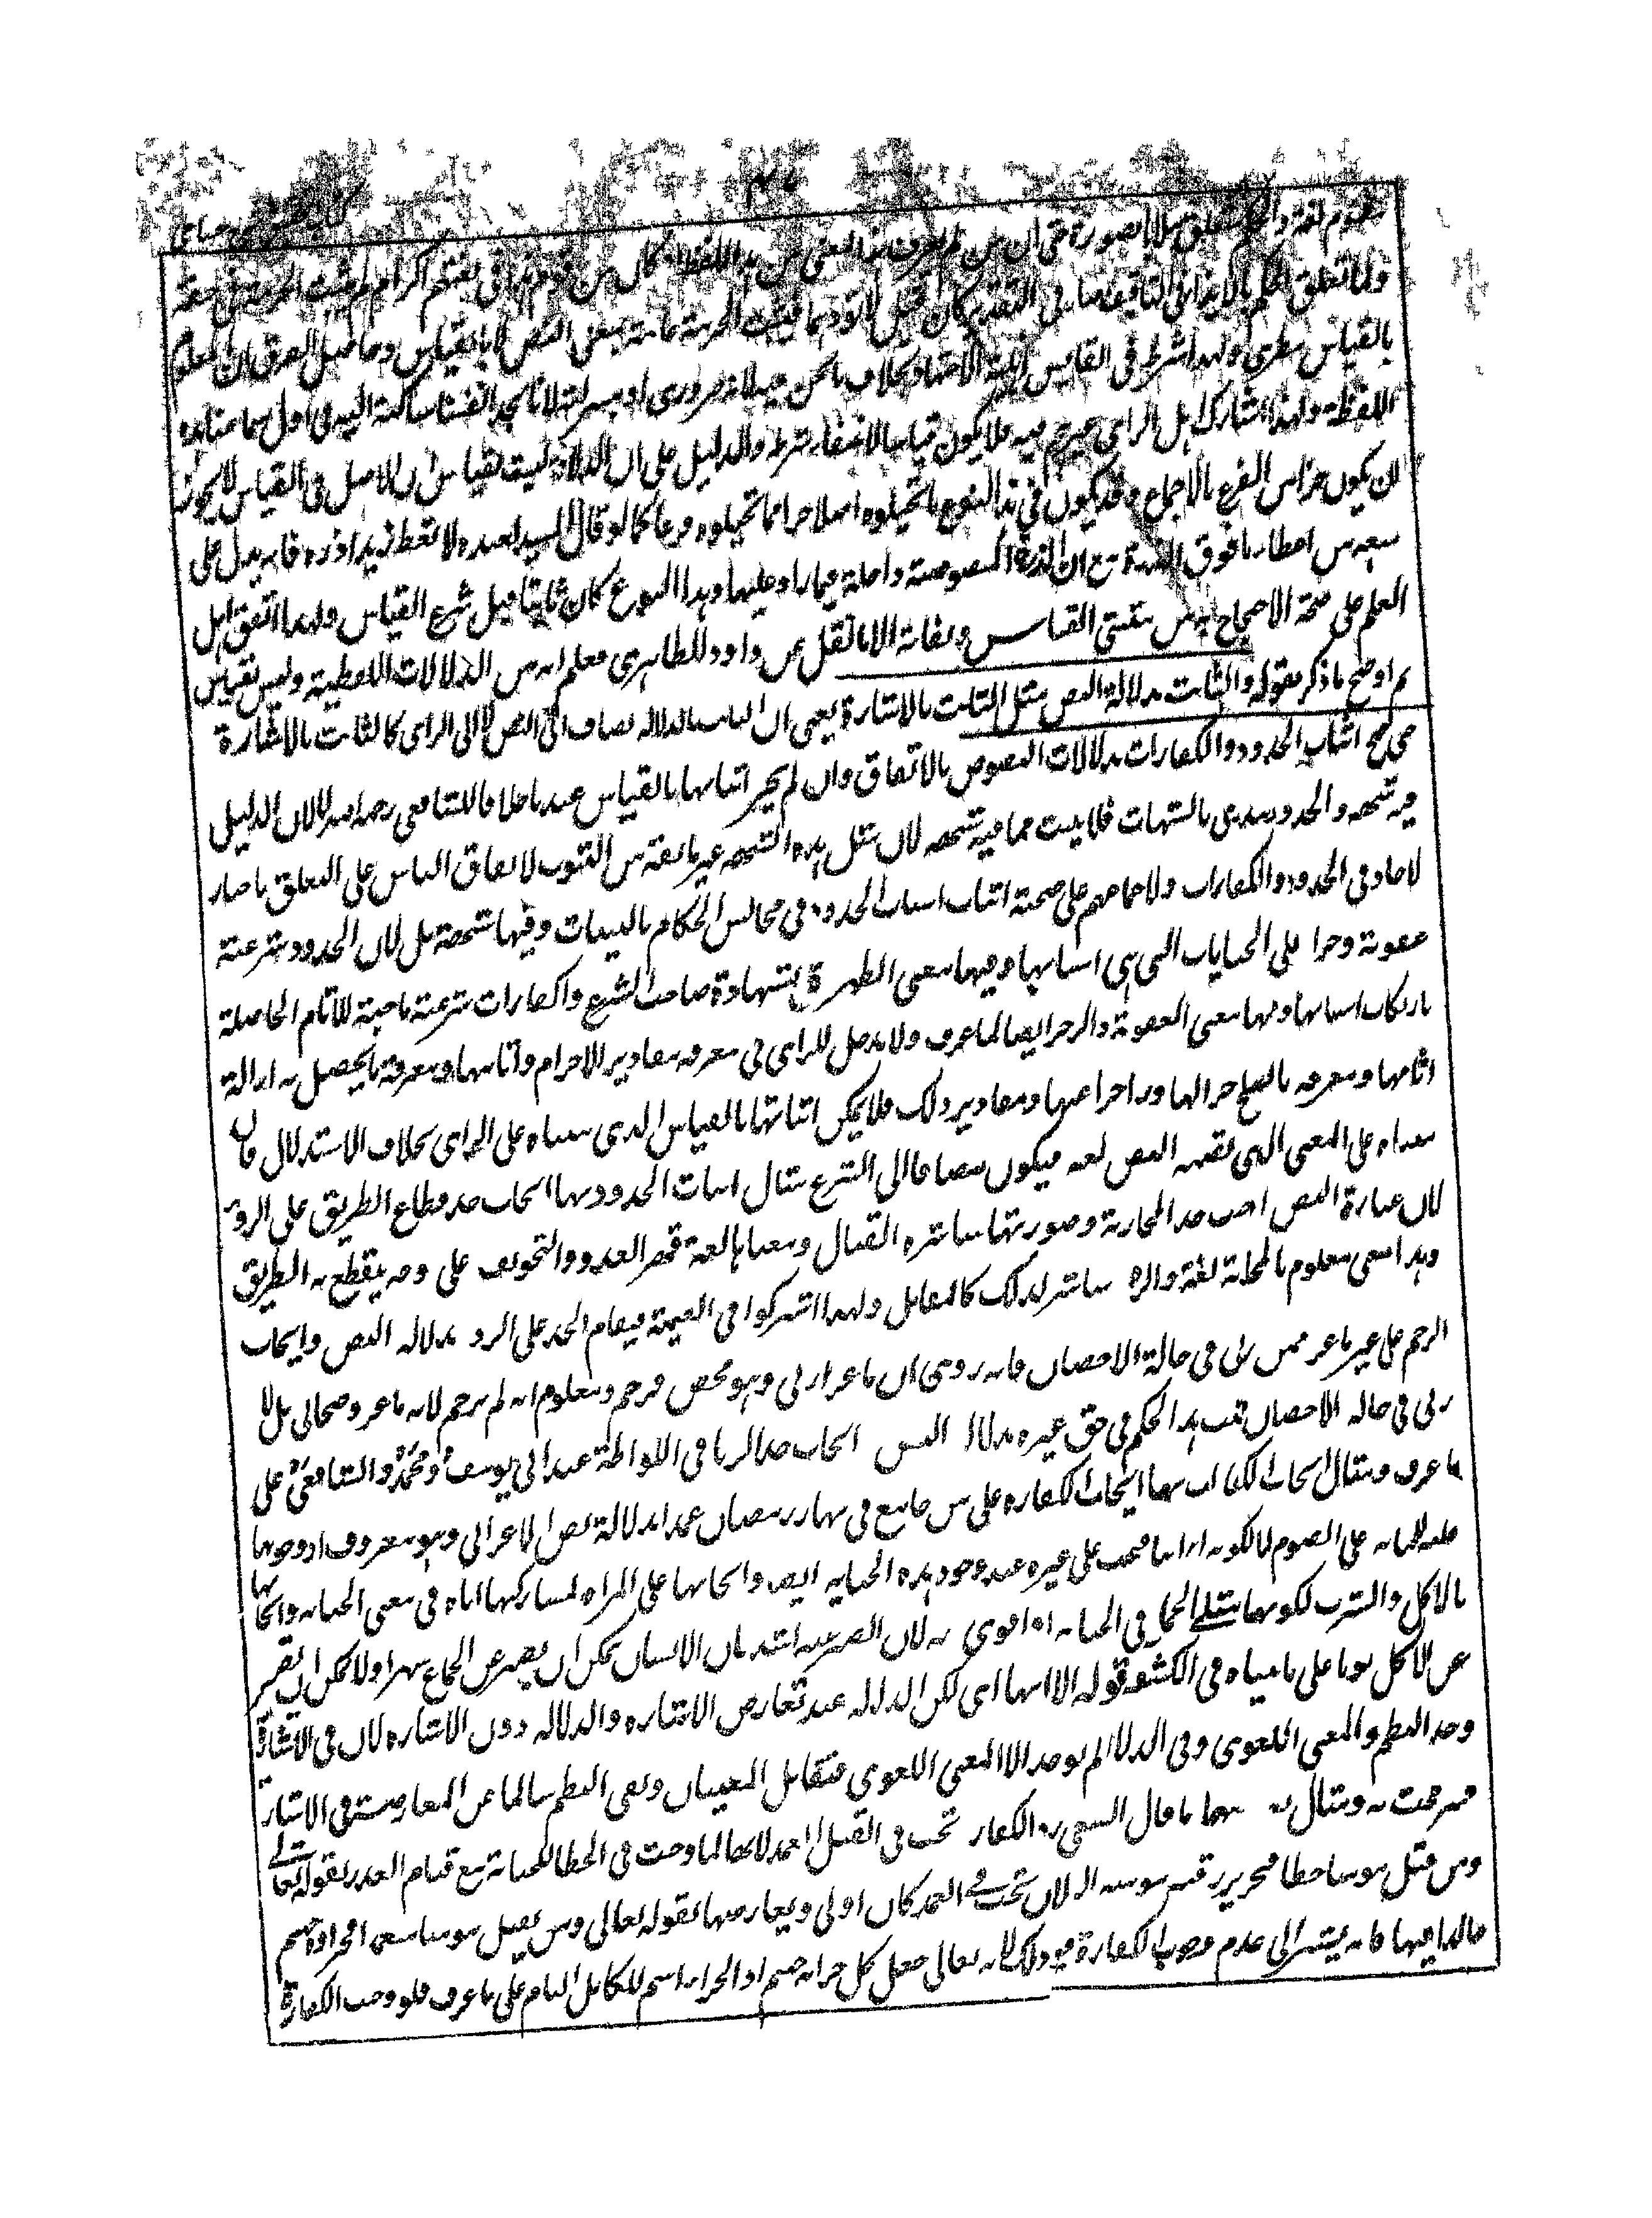 معلوم لغة والحكم متعلق بمعناه لا بصورته حتى ان من لم يعرف هذا المعنى من هذا اللفظ او كان من قوم هذا في لغتهم اكرام لم يثبت الحرمة في حقه
ولما تعلق الحكم بالايذاء في التافيف صار في التقدير كان قيل لا تؤذهما فيثبت الحرمة عامة بمعنى النص لا بالقياس وحاصل الفرق ان المعلوم
بالقياس نظري ولهذا شرط في القايس اهلية الاجتهاد بخلاف ما نحن فيه لانه ضروري او بمنزلته لانا نجد انفسنا ساكنة اليه في اول سماعنا هذه
اللفظة ولهذا شارك اهل الراي غيرهم فيه فلا يكون قياسا لانتفاء شرطه والدليل على ان الدلالة ليست بقياس ان الاصل في القياس لا يجوز
ان يكون جزا من الفرع بالاجماع وقد يكون في هذا النوع ما تخيلوه اصلا جزا مما تخيلوه فرعا كما لو قال السيد لعبده لا تعط زيدا ذرة فانه يدل على
منعه من اعطاء ما فوق الذرة مع ان الذرة المنصوصة داخلة فيما زاد عليها وهذا النوع كان ثابتا قبل شرع القياس ولهذا اتفق اهل
العلم على صحة الاحتجاج به من مثبتي القياس ونفاته الا ما نقل عن داود الظاهري فعلم انه من الدلالات اللفظية وليس بقياس
ثم اوضح ما ذكر بقوله والثابت بدلالة النص مثل الثابت بالاشارة يعني ان الثابت بالدلالة يضاف الى النص لا الى الراي كالثابت بالاشارة
حتى صح اثبات الحدود والكفارات بدلالات النصوص بالاتفاق وان لم يجز اثباتها بالقياس عندنا خلافا للشافعي رحمه الله لا لان الدليل
فيه شبهة والحدود يندرئ بالشبهات فلا يثبت مما فيه شبهة لان مثل هذه الشبهة غير مانعة من الثبوت لاتفاق الناس على التعلق باخبار
الاحاد في الحدود والكفارات ولاجماعهم على صحة اثبات اسباب الحدود في مجالس الحكام بالبينات وفيها شبهة بل لان الحدود شرعت
عقوبة وجزا على الجنايات التي هي اسبابها وفيها معنى الطهرة بشهادة صاحب الشرع والكفارات شرعت ماحية للاثام الحاصلة
بارتكاب اسبابها وفيها معنى العقوبة والزجر ايضا لما عرف ولا مدخل للراي في معرفة مقادير الاجرام واثامها ومعرفة ما يحصل به ازالة
اثامها ومعرفة ما يصلح جزا لها وزاجرا عنها ومقادير ذلك فلا يمكن اثباتها بالقياس الذي مبناه على الراي بخلاف الاستدلال فان
مبناه على المعنى الذي تضمنه النص لغة فيكون مضافا الى الشرع مثال اثبات الحدود بها ايجاب حد قطاع الطريق على الردء
لان عبارة النص احب حد المحاربة وصورتها مباشرة القتال ومعناها لغة قهر العدو والتخويف على وجه ينقطع به الطريق
وهذا معنى معلوم بالمحاربة لغة والردء مباشر لذلك كالمقاتل ولهذا اشتركوا في الغنيمة فيقام الحد على الردء بدلالة النص وايجاب
الرجم على غير ماعز ممن زنى في حالة الاحصان فانه روي ان ماعزا زنى وهو محصن فرجم ومعلوم انه لم يرجم لانه ماعز وصحابي بل لانه
زنى في حالة الاحصان فثبت هذا الحكم في حق غيره بدلالة النص ايجاب حد الزنا في اللواطة عند ابي يوسف ومحمد والشافعي على
ما عرف ومثال ايجاب الكفارات بها ايجاب الكفارة على من جامع في نهار رمضان عمدا بدلالة نص الاعرابي وهو معروف اذ وجوبها
عليه للجناية على الصوم لا لكونه اعرابيا فتجب على غيره عند وجود هذه الجناية ايضا وايجابها على المراة لمشاركتها اياه في معنى الجناية وايجابها
بالاكل والشرب لكونهما مثل الجماع في الجناية او اقوى به لان الصبر عنه اشد فان الانسان يمكن ان يصبر عن الجماع شهرا ولا يمكن ان يصبر
عن الاكل يوما على ما بيناه في الكشف قوله الا انها اي لكن الدلالة عند تعارض الاشارة والدلالة دون الاشارة لان في الاشارة
وجد النظم والمعنى اللغوي وفي الدلالة لم يوجد الا المعنى اللغوي فتقابل المعنيان وبقي النظم سالما عن المعارضة في الاشارة
فترجحت به ومثال تعارضهما ما قال الشافعي ره الكفارة تجب في القتل العمد لانها لما وجبت في الخطا للجناية مع قيام العذر بقوله تعالى
ومن قتل مومنا خطا فتحرير رقبة مومنة الاية لان تجب في العمد كان اولى ويعارضها بقوله تعالى ومن يقتل مومنا متعمدا فجزاؤه جهنم
خالدا فيها فانه يشير الى عدم وجوب الكفارة فيه وذلك لانه تعالى جعل كل جزائه جهنم اذ الجزاء اسم للكامل التام على ما عرف فلو وجب الكفارة